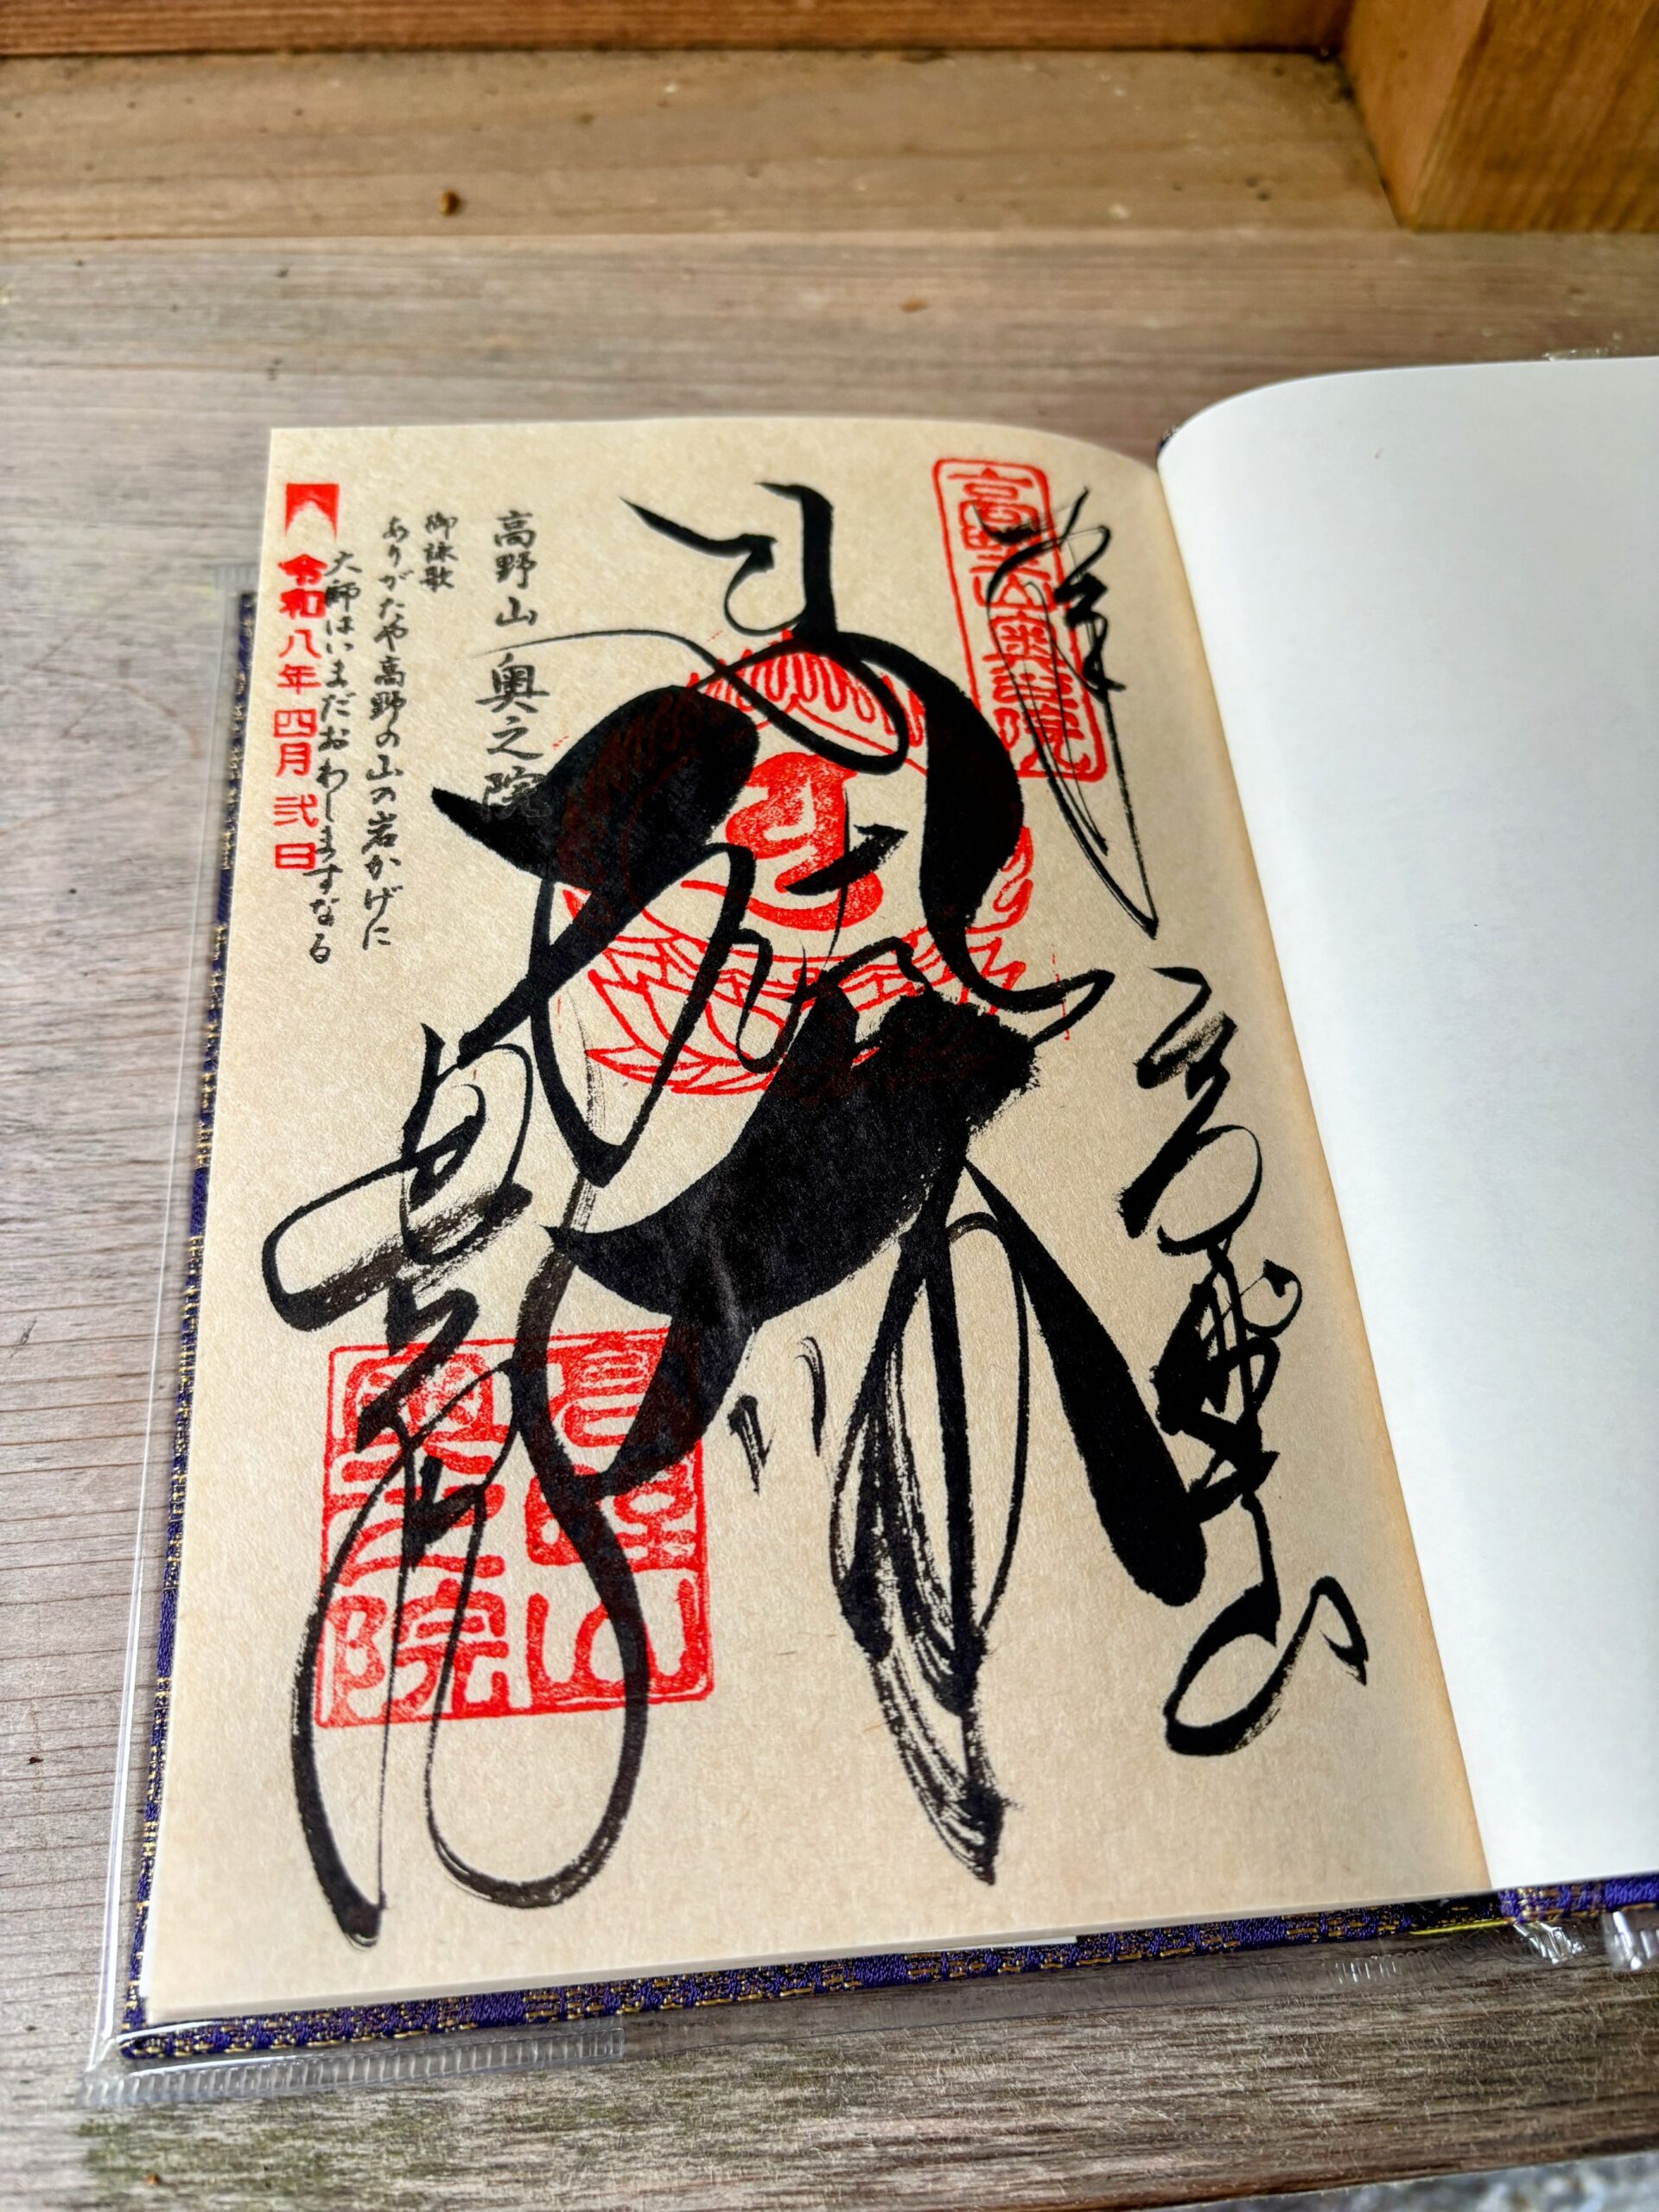 奉拝
高野山奥之院
高野山
弘法大師
奥之院
高野山奥之院
高野山 奥之院
御詠歌
ありがたや高野の山の岩かげに
大師はいまだおわしますなる
令和八年四月弐日